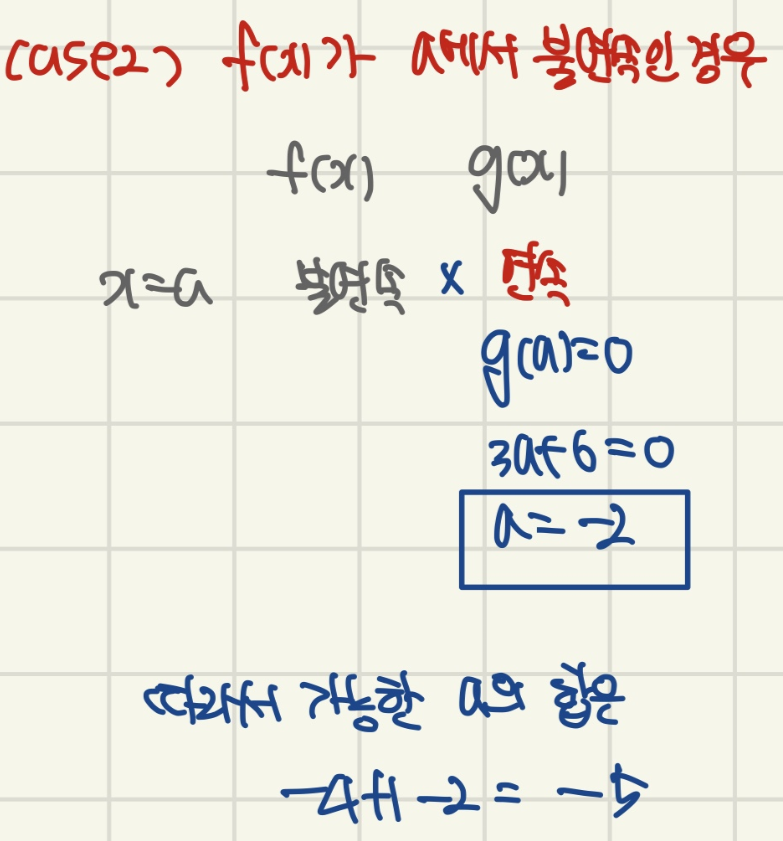 case2) f(x)가 a에서 불연속인 경우
f(x) g(x)
x=a 불연속 x 연속
g(a)=0
3a+6=0
a=-2
따라서 가능한 a의 합은
-4+1-2=-5